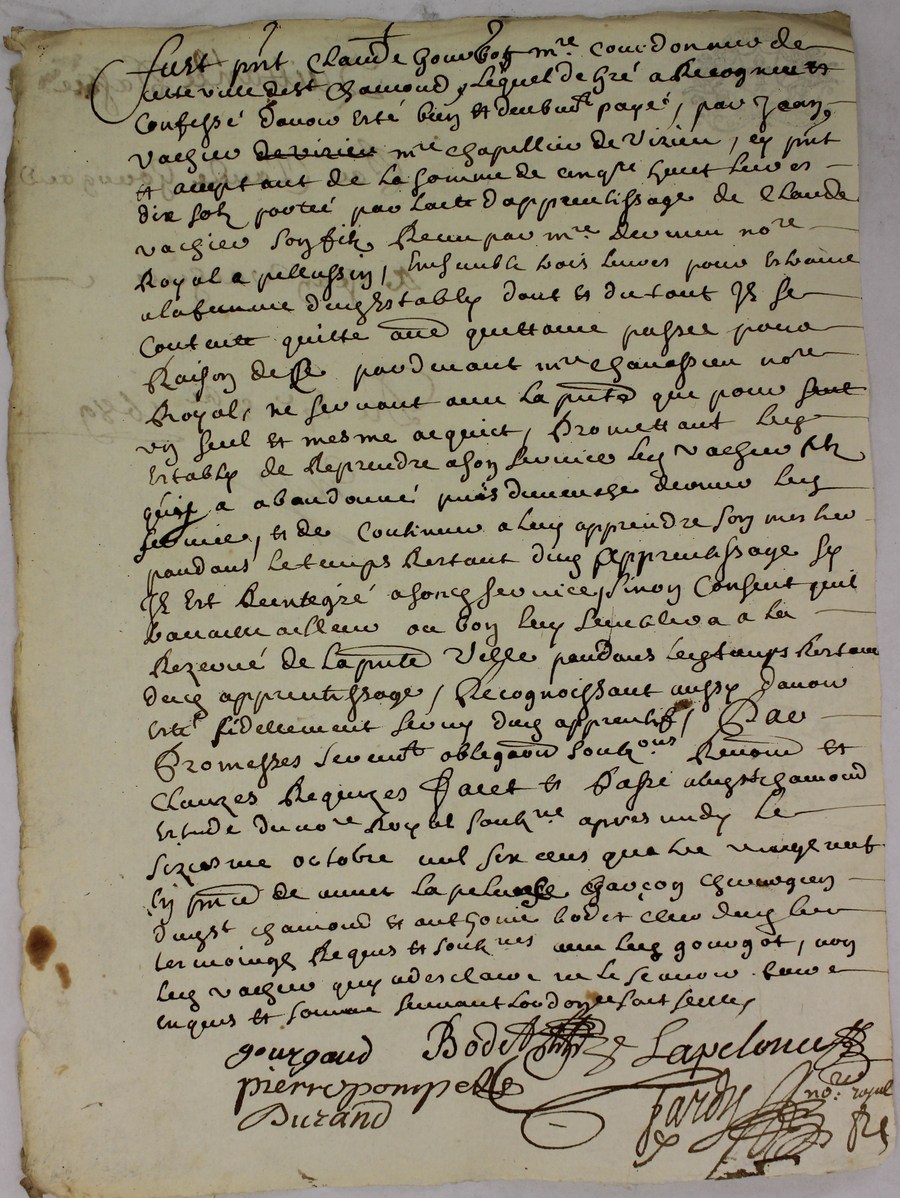 fust pnt Claude gourgot mre courdonnier de
cette ville de st Chamond, Lequel de gré a Recogneu et
Confessé d'avoir esté bien et deubmt payé, par Jean
vachier de virieu mre chapellier de Virieu, cy pnt
et aceptant de La somme de cinqte huict Livres
dix solz portée par Lacte d'apprentissage de Claude
vachier son filz Receu par mre devenu nore
Royal a pellussin, Ensemble trois livres pour estraine
a la femme dung Estably dont et du tout Il se
Contente quitte avec quittance passee pour
Raison de ce pardevant mre chanassieu nore
Royal, ne servant avec La pnte que pour seul
un seul et mesme acquict, Promettant led
Estably de Reprendre a son service led vachier filz
quil a abandonné puis dimenche dernier led
service, et de Continuer a luy apprendre son mestier
pandant le temps Restant dud apprentissage sy
Il Est Reintegré a son service, sinon Consent quil
travaille ailleur ou bon luy semblera a la
Rezerve de La pnte Ville pandant led temps Restant
dud apprentissage, Recognoissant aussy d'avoir
esté fidellement servy dud apprentif, Par
Promesses serment obligaon soubzons Renonon et
Clauzes Requizes faict et Passé aud st chamond
estude du nore Royal soubzne apres midy le
sixiesme octobre mil six cens quatre vingt neuf
En pnce de annet lapelouse garçon chirurgien
dud st chamond et anthoine bodet clerc dud lieu
tesmoingz Requis et soubznes avec led gourgot, non
led vachier quy a desclaré ne le scavoir faire
enquis et somme suivant Lordonce sont seelle,
gourgaud Bodet Lapelouse
pierre pompelle
Durand Jardy nore royal